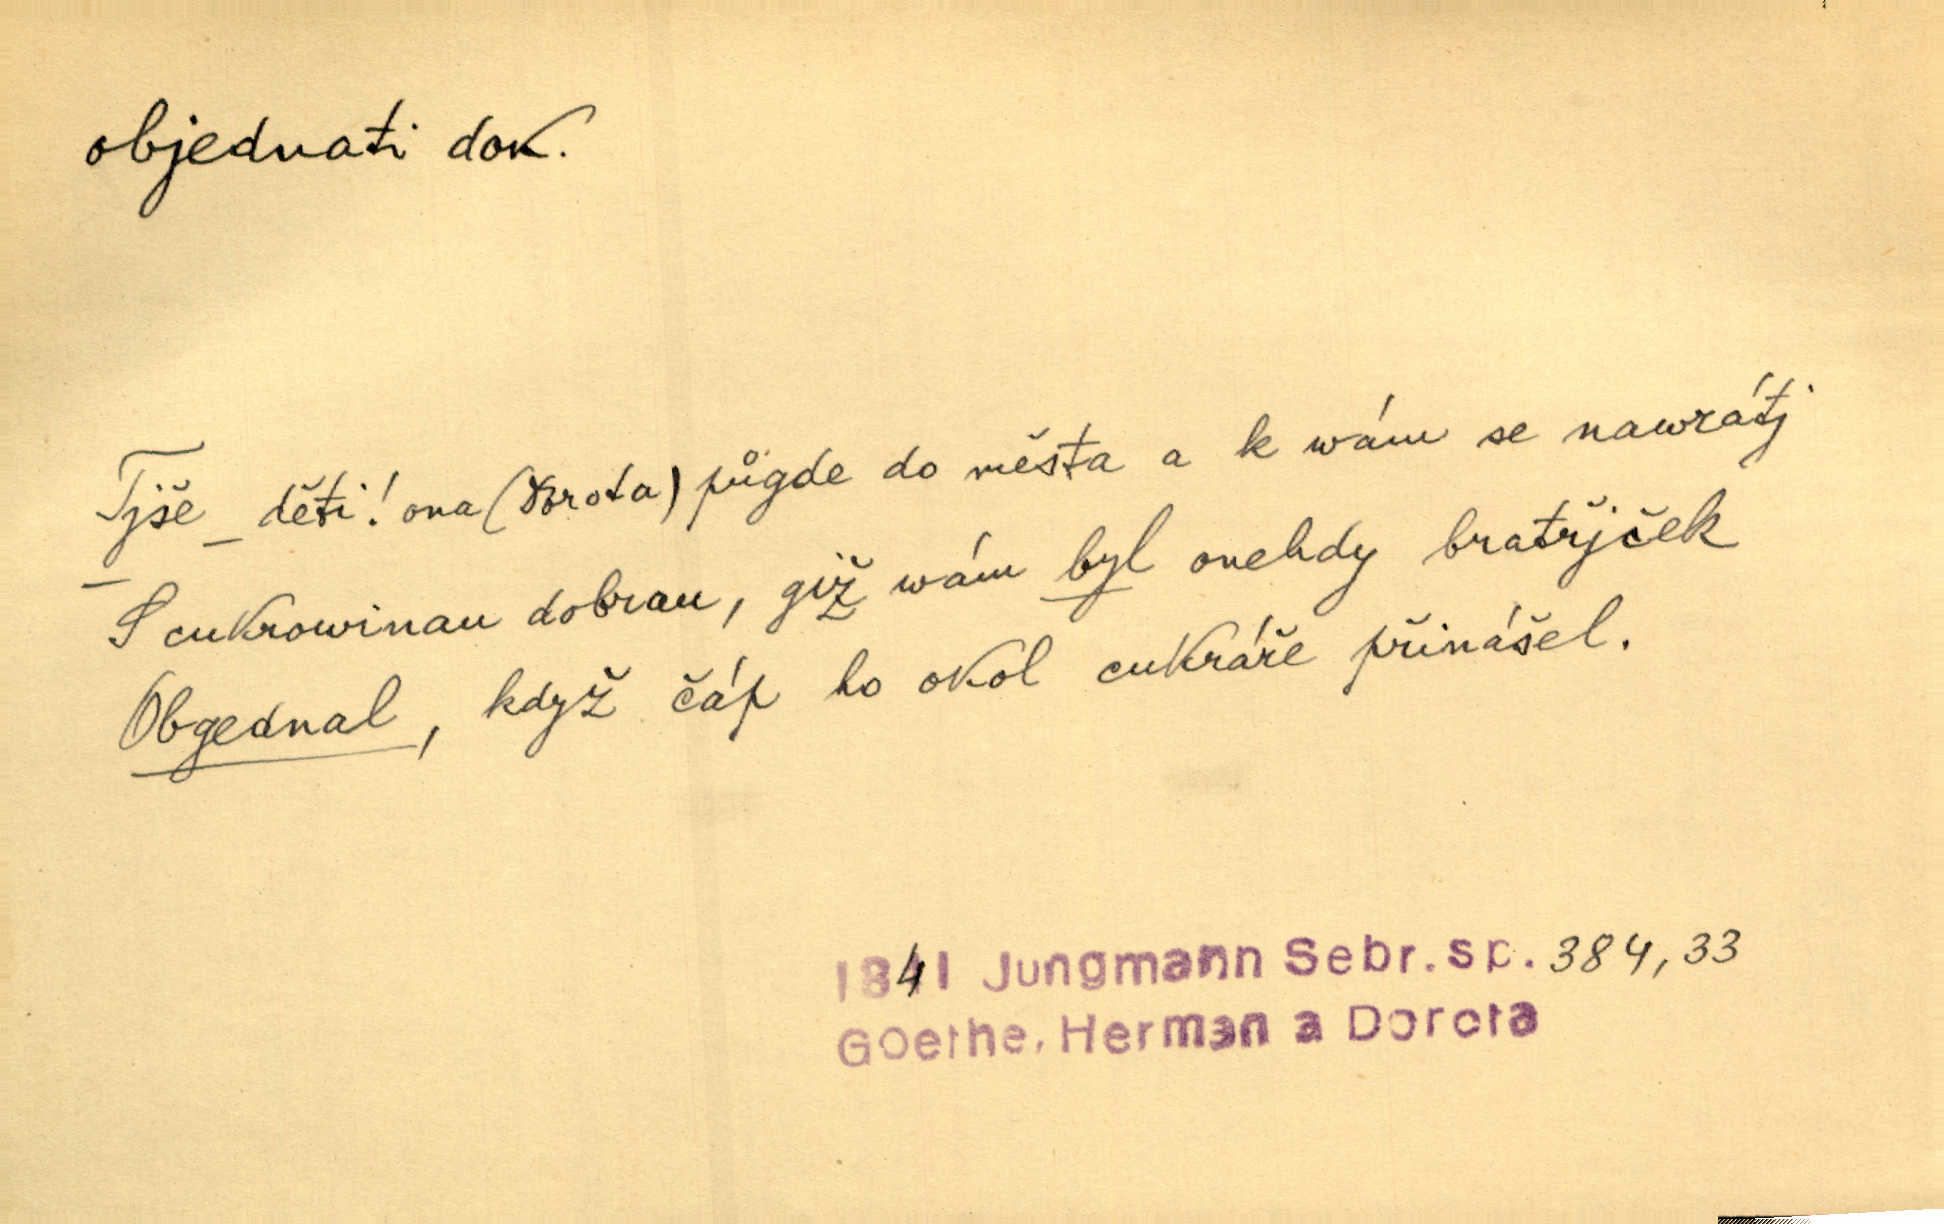 objednati dok.
Tjše_děti! ona (Dorota) půgde do města a k wám se nawrátj
S cukrowinau dobrau, giž wám byl onehdy bratřjček
Obgednal, když čáp ho okol cukráře přinášel.
1841 Jungmann Sebr. sp. 384,33
Goethe, Herman a Dorota